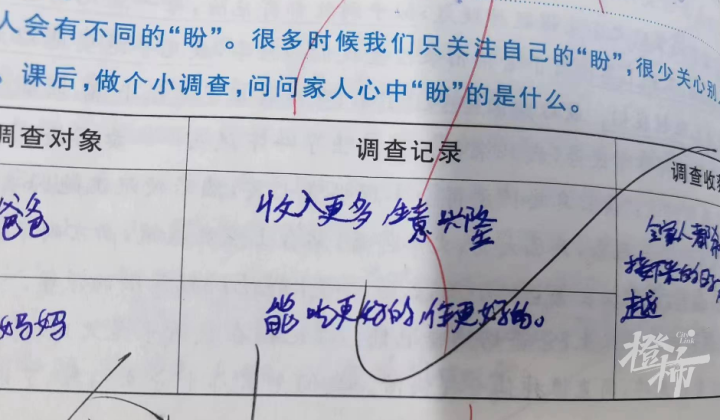 人会有不同的“盼”。很多时候我们只关注自己的“盼”,很少关心别
。课后,做个小调查,问问家人心中“盼”的是什么。
调查对象 调查记录 调查收
爸爸 收入更多 生意兴隆 全家人都
妈妈 能吃更好的,住更好的。 接下来的日
越
橙柿